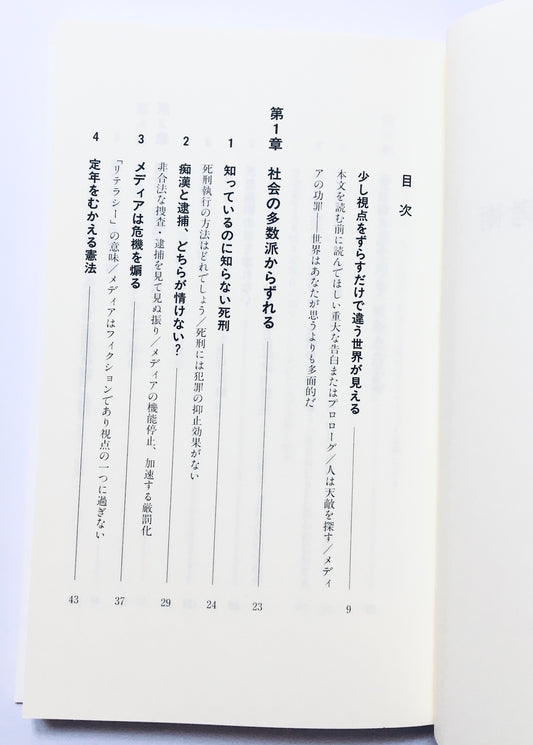 目次
少し視点をずらすだけで違う世界が見える 9
本文を読む前に読んでほしい重大な告白またはプロローグ／人は天敵を探す／メディ
アの功罪――世界はあなたが思うよりも多面的だ
第1章 社会の多数派からずれる 23
1 知っているのに知らない死刑 24
死刑執行の方法はどれでしょう／死刑には犯罪の抑止効果がない
2 痴漢と逮捕、どちらが情けない？ 29
非合法な捜査・逮捕を見て見ぬ振り／メディアの機能停止、加速する厳罰化
3 メディアは危機を煽る 37
「リテラシー」の意味／メディアはフィクションであり視点の一つに過ぎない
4 定年をむかえる憲法 43